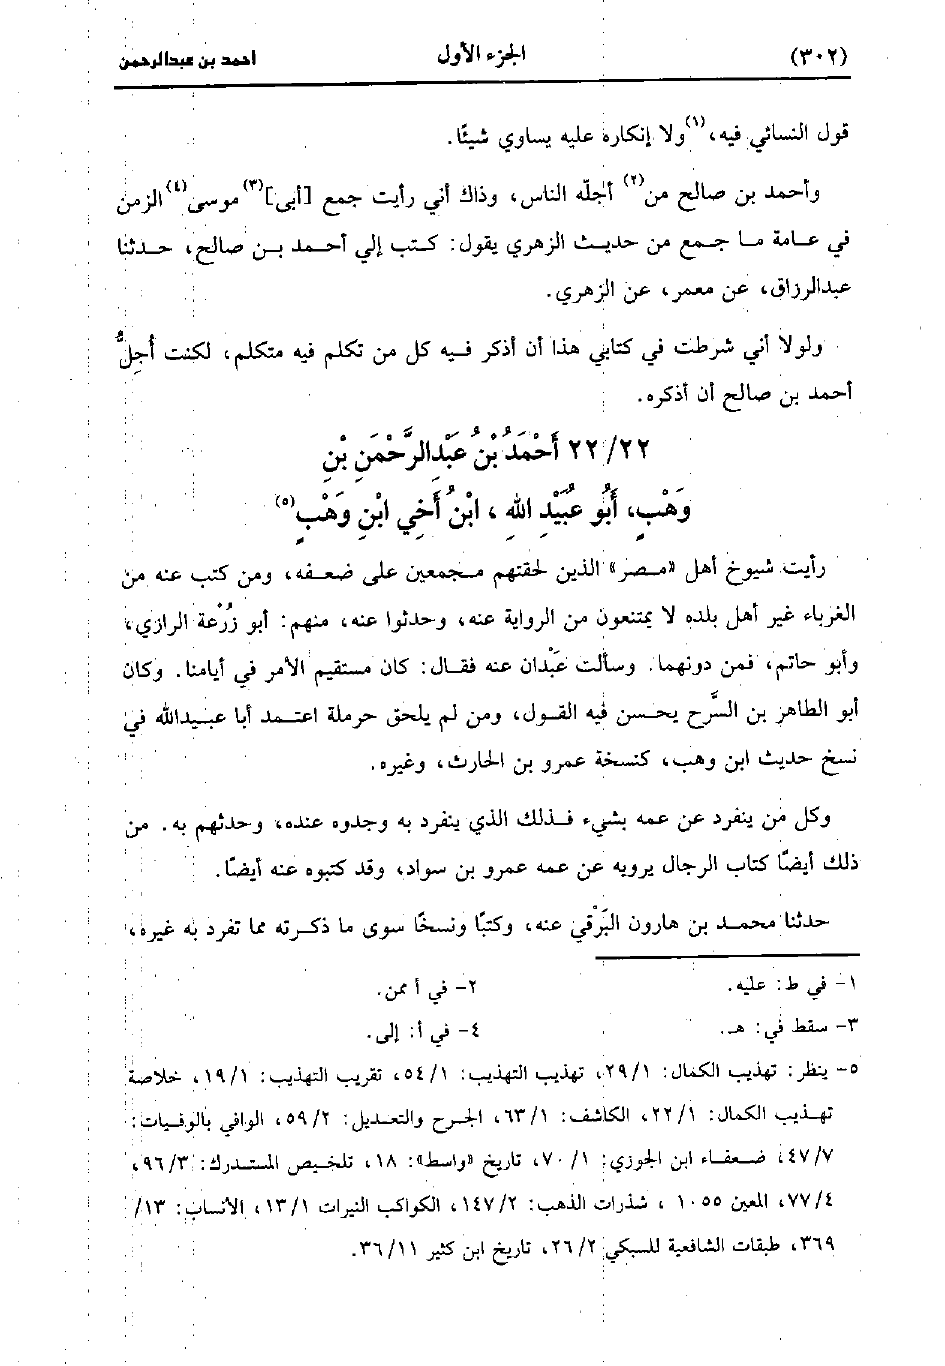 (٣٠٢) الجزء الأول احمد بن عبدالرحمن
قول النسائي فيه،(١) ولا إنكاره عليه يساوي شيئًا.
وأحمد بن صالح من(٢) أجلّه الناس، وذاك أني رأيت جمع [أبى](٣) موسى(٤) الزمن
في عامة ما جمع من حديث الزهري يقول: كتب إلي أحمد بن صالح، حدثنا
عبدالرزاق، عن معمر، عن الزهري.
ولولا أني شرطت في كتابي هذا أن أذكر فيه كل من تكلم فيه متكلم، لكنت أُجِلُّ
أحمد بن صالح أن أذكره.
٢٢/٢٢ أَحْمَدُ بْنُ عَبْدِالرَّحْمَنِ بْنِ
وَهْبٍ، أَبُو عُبَيْدِ اللهِ، ابْنُ أَخِي ابْنِ وَهْبٍ(٥)
رأيت شيوخ أهل «مصر» الذين لحقتهم مجمعين على ضعفه، ومن كتب عنه من
الغرباء غير أهل بلده لا يمتنعون من الرواية عنه، وحدثوا عنه، منهم: أبو زُرْعة الرازي،
وأبو حاتم، فمن دونهما. وسألت عَبْدان عنه فقال: كان مستقيم الأمر في أيامنا. وكان
أبو الطاهر بن السَّرح يحسن فيه القول، ومن لم يلحق حرملة اعتمد أبا عبيدالله في
نسخ حديث ابن وهب، كنسخة عمرو بن الحارث، وغيره.
وكل من ينفرد عن عمه بشيء فذلك الذي ينفرد به وجدوه عنده، وحدثهم به. من
ذلك أيضًا كتاب الرجال يرويه عن عمه عمرو بن سواد، وقد كتبوه عنه أيضًا.
حدثنا محمد بن هارون البَرْقي عنه، وكتبًا ونسخًا سوى ما ذكرته مما تفرد به غيره،
١- في ط: عليه. ٢- في أ ممن.
٣- سقط في: هـ. ٤- في أ: إلى.
٥- ينظر: تهذيب الكمال: ٢٩/١، تهذيب التهذيب: ٥٤/١، تقريب التهذيب: ١٩/١، خلاصة
تهذيب الكمال: ٢٢/١، الكاشف: ٦٣/١، الجرح والتعديل: ٥٩/٢، الوافي بالوفيات:
٤٧/٧، ضعفاء ابن الجوزي: ٧٠/١، تاريخ «واسط»: ١٨، تلخيص المستدرك: ٩٦/٣،
٧٧/٤، المعين ١٠٥٥، شذرات الذهب: ١٤٧/٢، الكواكب النيرات ١٣/١، الأنساب: ١٣/
٣٦٩، طبقات الشافعية للسبكي ٢٦/٢، تاريخ ابن كثير ٣٦/١١.